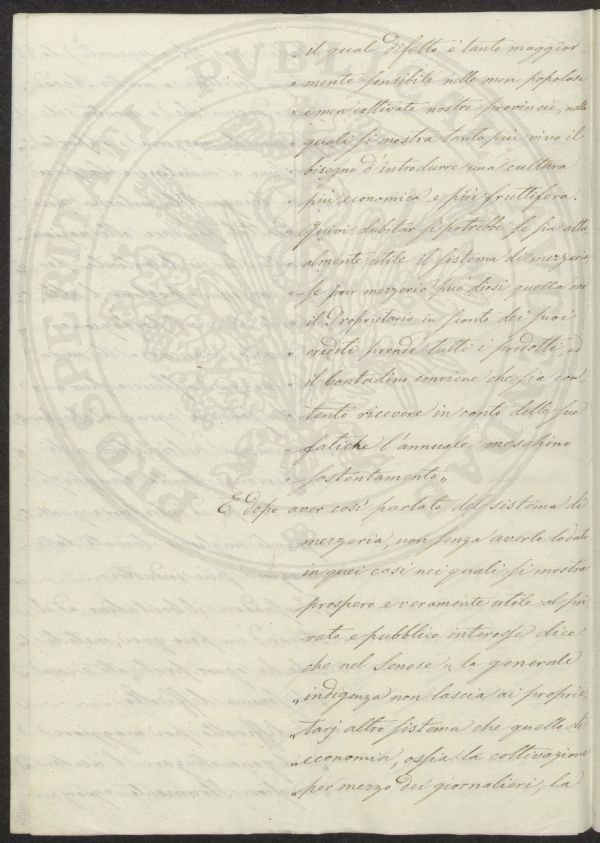 „ il qual difetto è tanto maggior
„ mente sensibile nelle men popolose
„ e men coltivate nostre provincie, nelle
„ quali si mostra tanto più vivo il
„ bisogno d'introdurre una cultura
„ più economica e più fruttifera.
„ Quivi dubitar si potrebbe, se sia attu
„ almente utile il sistema di mezzeria,
„ se pur mezzeria può dirsi quella ove
„ il Proprietario in sconto dei suoi
„ crediti prende tutti i prodotti, ed
„ il Contadino conviene che sia con
„ tento ricevere in conto delle sue
„ fatiche l'annuale meschino
„ sostentamento „
E dopo aver così parlato del sistema di
mezzeria, non senza averlo lodato
in quei casi nei quali si mostra
prospero e veramente utile al pri
vato e pubblico interesse dice
che nel Senese „ la generale
„ indigenza non lascia ai proprie
„ tarj altro sistema che quello di
„ economia, ossia la coltivazione
„ per mezzo dei giornalieri, la
PROSPERITATI PVBLICAE